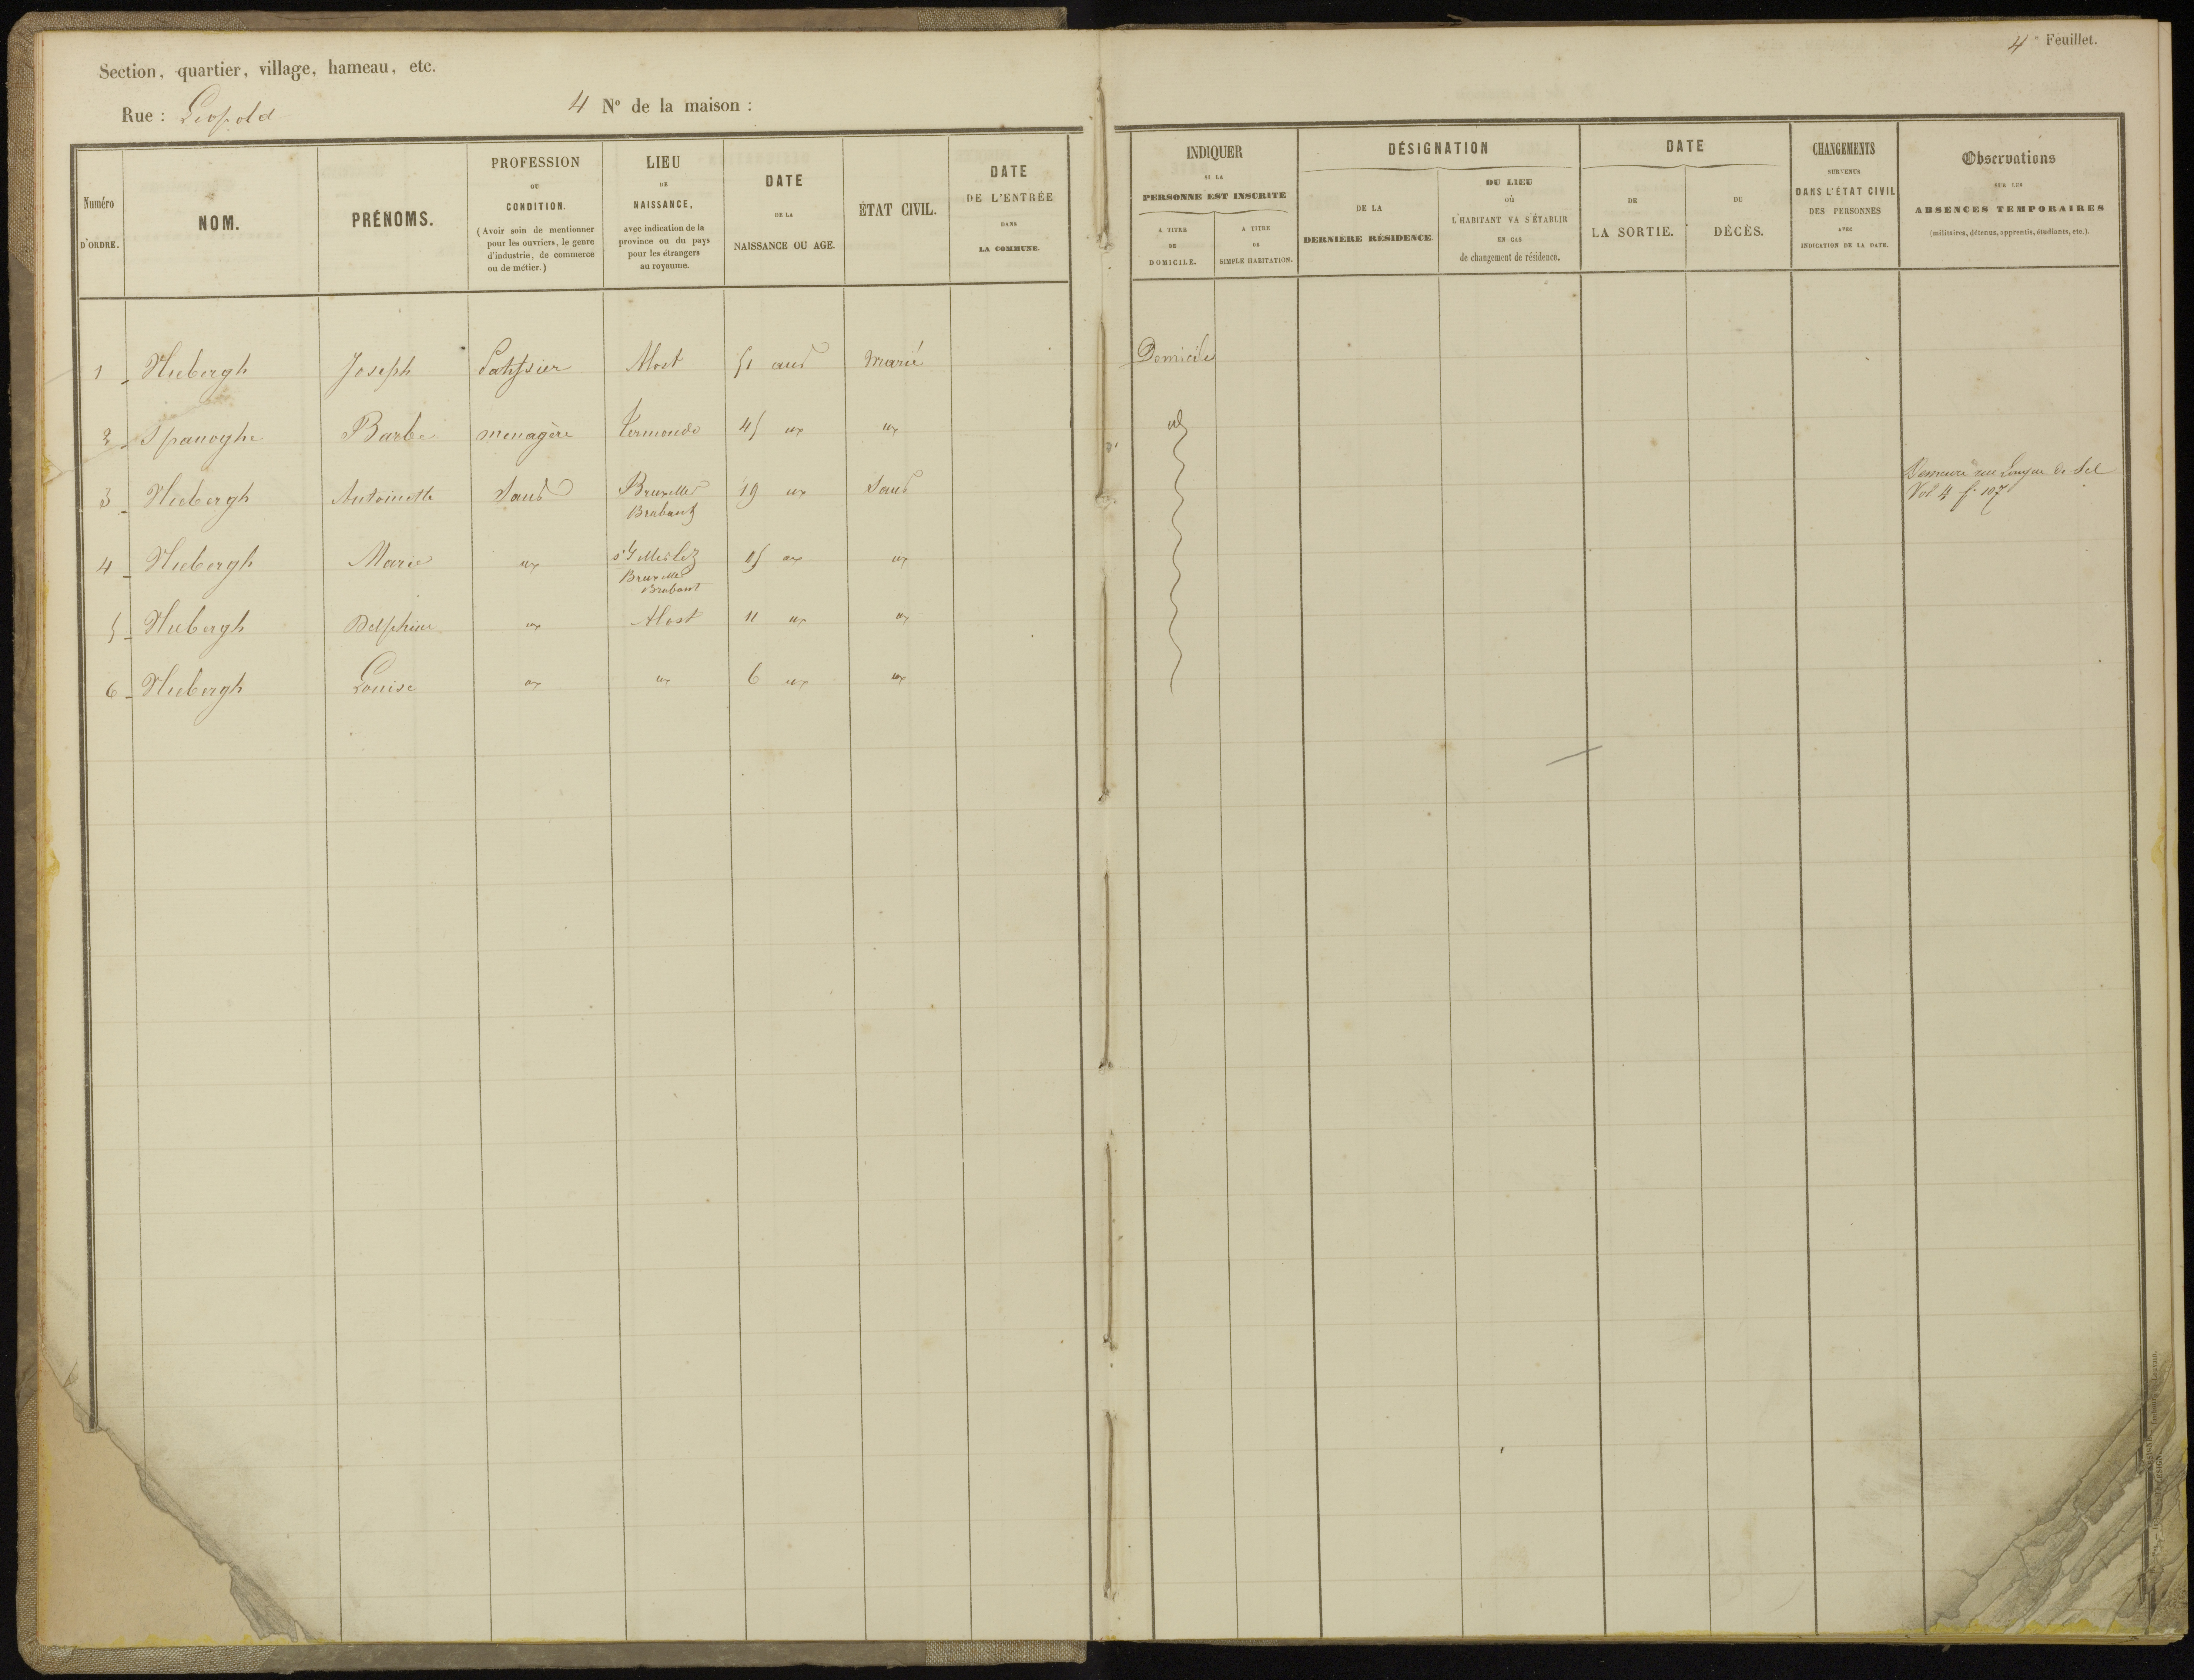 4e Feuillet.
Section, quartier, village, hameau, etc.
Rue : Léopold
4 No de la maison :
Numéro D'ORDRE.
NOM.
PRÉNOMS.
PROFESSION
OU
CONDITION.
(Avoir soin de mentionner
pour les ouvriers, le genre
d'industrie, de commerce
ou de métier.)
LIEU
DE
NAISSANCE,
avec indication de la
province ou du pays
pour les étrangers
au royaume.
DATE
DE LA
NAISSANCE OU AGE.
ÉTAT CIVIL.
DATE
DE L'ENTRÉE
DANS
LA COMMUNE.
INDIQUER
SI LA
PERSONNE EST INSCRITE
A TITRE
DE
DOMICILE.
A TITRE
DE
SIMPLE HABITATION.
DÉSIGNATION
DE LA
DERNIÈRE RÉSIDENCE.
DU LIEU
où
L'HABITANT VA S'ÉTABLIR
EN CAS
de changement de résidence.
DATE
DE
LA SORTIE.
DU
DÉCÈS.
CHANGEMENTS
SURVENUS
DANS L'ÉTAT CIVIL
DES PERSONNES
AVEC
INDICATION DE LA DATE.
Observations
SUR LES
ABSENCES TEMPORAIRES
(militaires, détenus, apprentis, étudiants, etc.).
1 Huebergh Joseph Patissier Alost 51 ans marié Domicile
2 Spanoghe Barbe menagère Termonde 45 " " id
3 Huebergh Antoinette Sans Bruxelles 19 " Sans
Brabant
Demeure rue Longue de Sel
Vol 4 f. 107
4 Huebergh Marie " 15 " "
Bruxelles
Brabant
5 Huebergh Delphine " Alost 11 " "
6 Huebergh Louise " " 6 " "